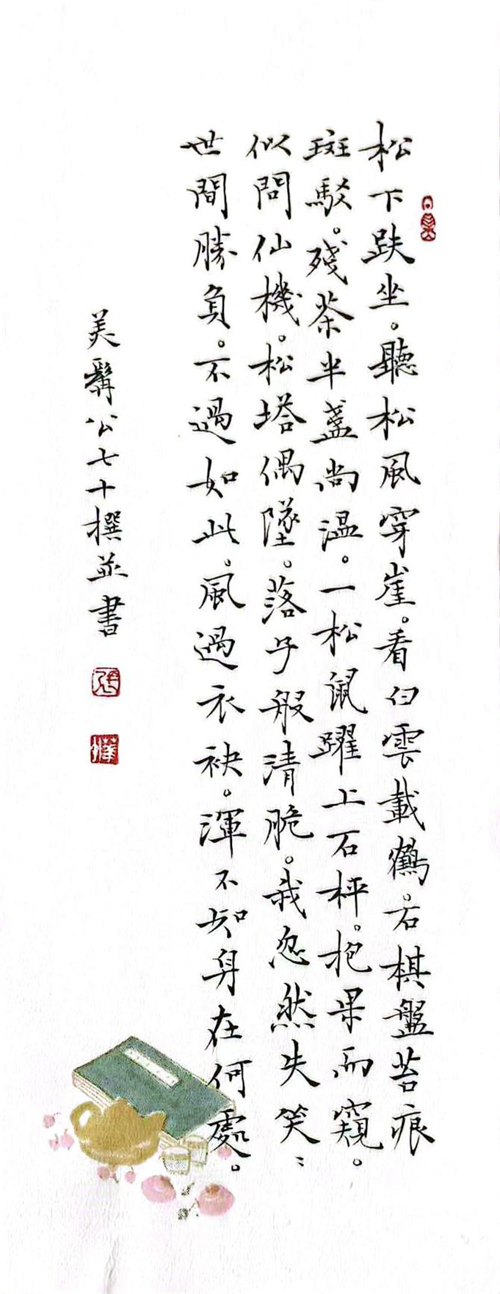 松下趺坐。聽松風穿崖。看白雲載鶴。石棋盤苔痕
斑駁。殘茶半盞尚溫。一松鼠躍上石枰。抱果而窺。
似問仙機。松塔偶墜。落子般清脆。我忽然失笑：
世間勝負。不過如此。風過衣袂。渾不知身在何處。
美髯公七十撰並書